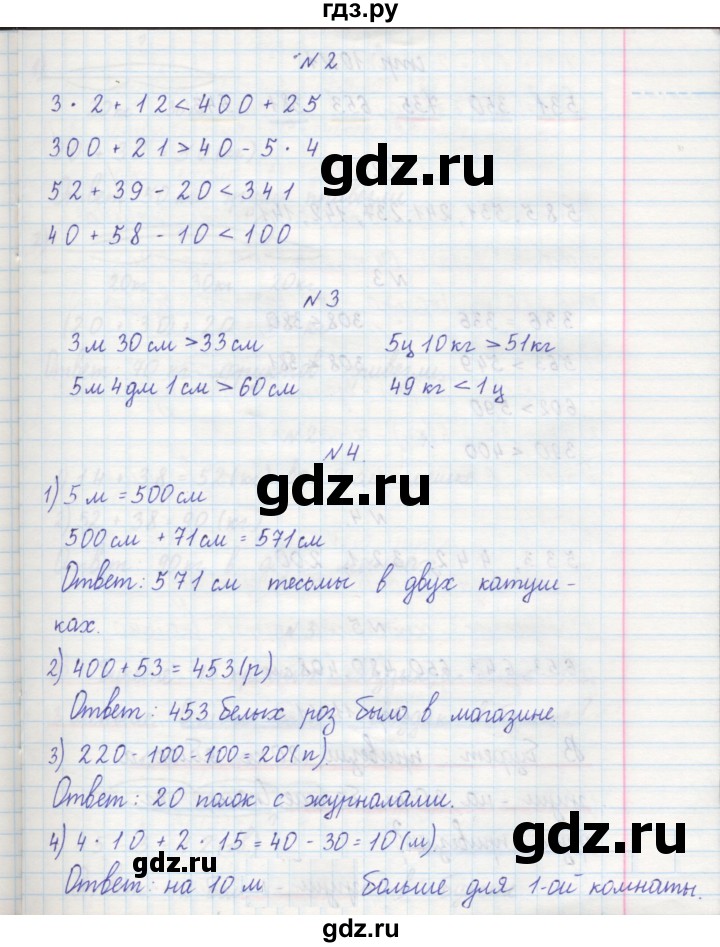 гдз.ру
№2
3 · 2 + 12 < 400 + 25
300 + 21 > 40 - 5 · 4
gdz.ru
52 + 39 - 20 < 341
40 + 58 - 10 < 100
№3
3 м 30 см > 33 см 5ц 10 кг > 51 кг
5 м 4 дм 1 см > 60 см 49 кг < 1 ц
№4.
gdz.ru
1) 5 м = 500 см
500 см + 71 см = 571 см
Ответ: 571 см тесьмы в двух катуш-
ках.
2) 400 + 53 = 453 (р)
Ответ: 453 белых роз было в магазине
gdz.ru
3) 220 - 100 - 100 = 20 (п)
Ответ: 20 полок с журналами.
4) 4 · 10 + 2 · 15 = 40 - 30 = 10 (м)
gdz.ru
Ответ: на 10 м больше для 1-ой комнаты.
gdz.ru